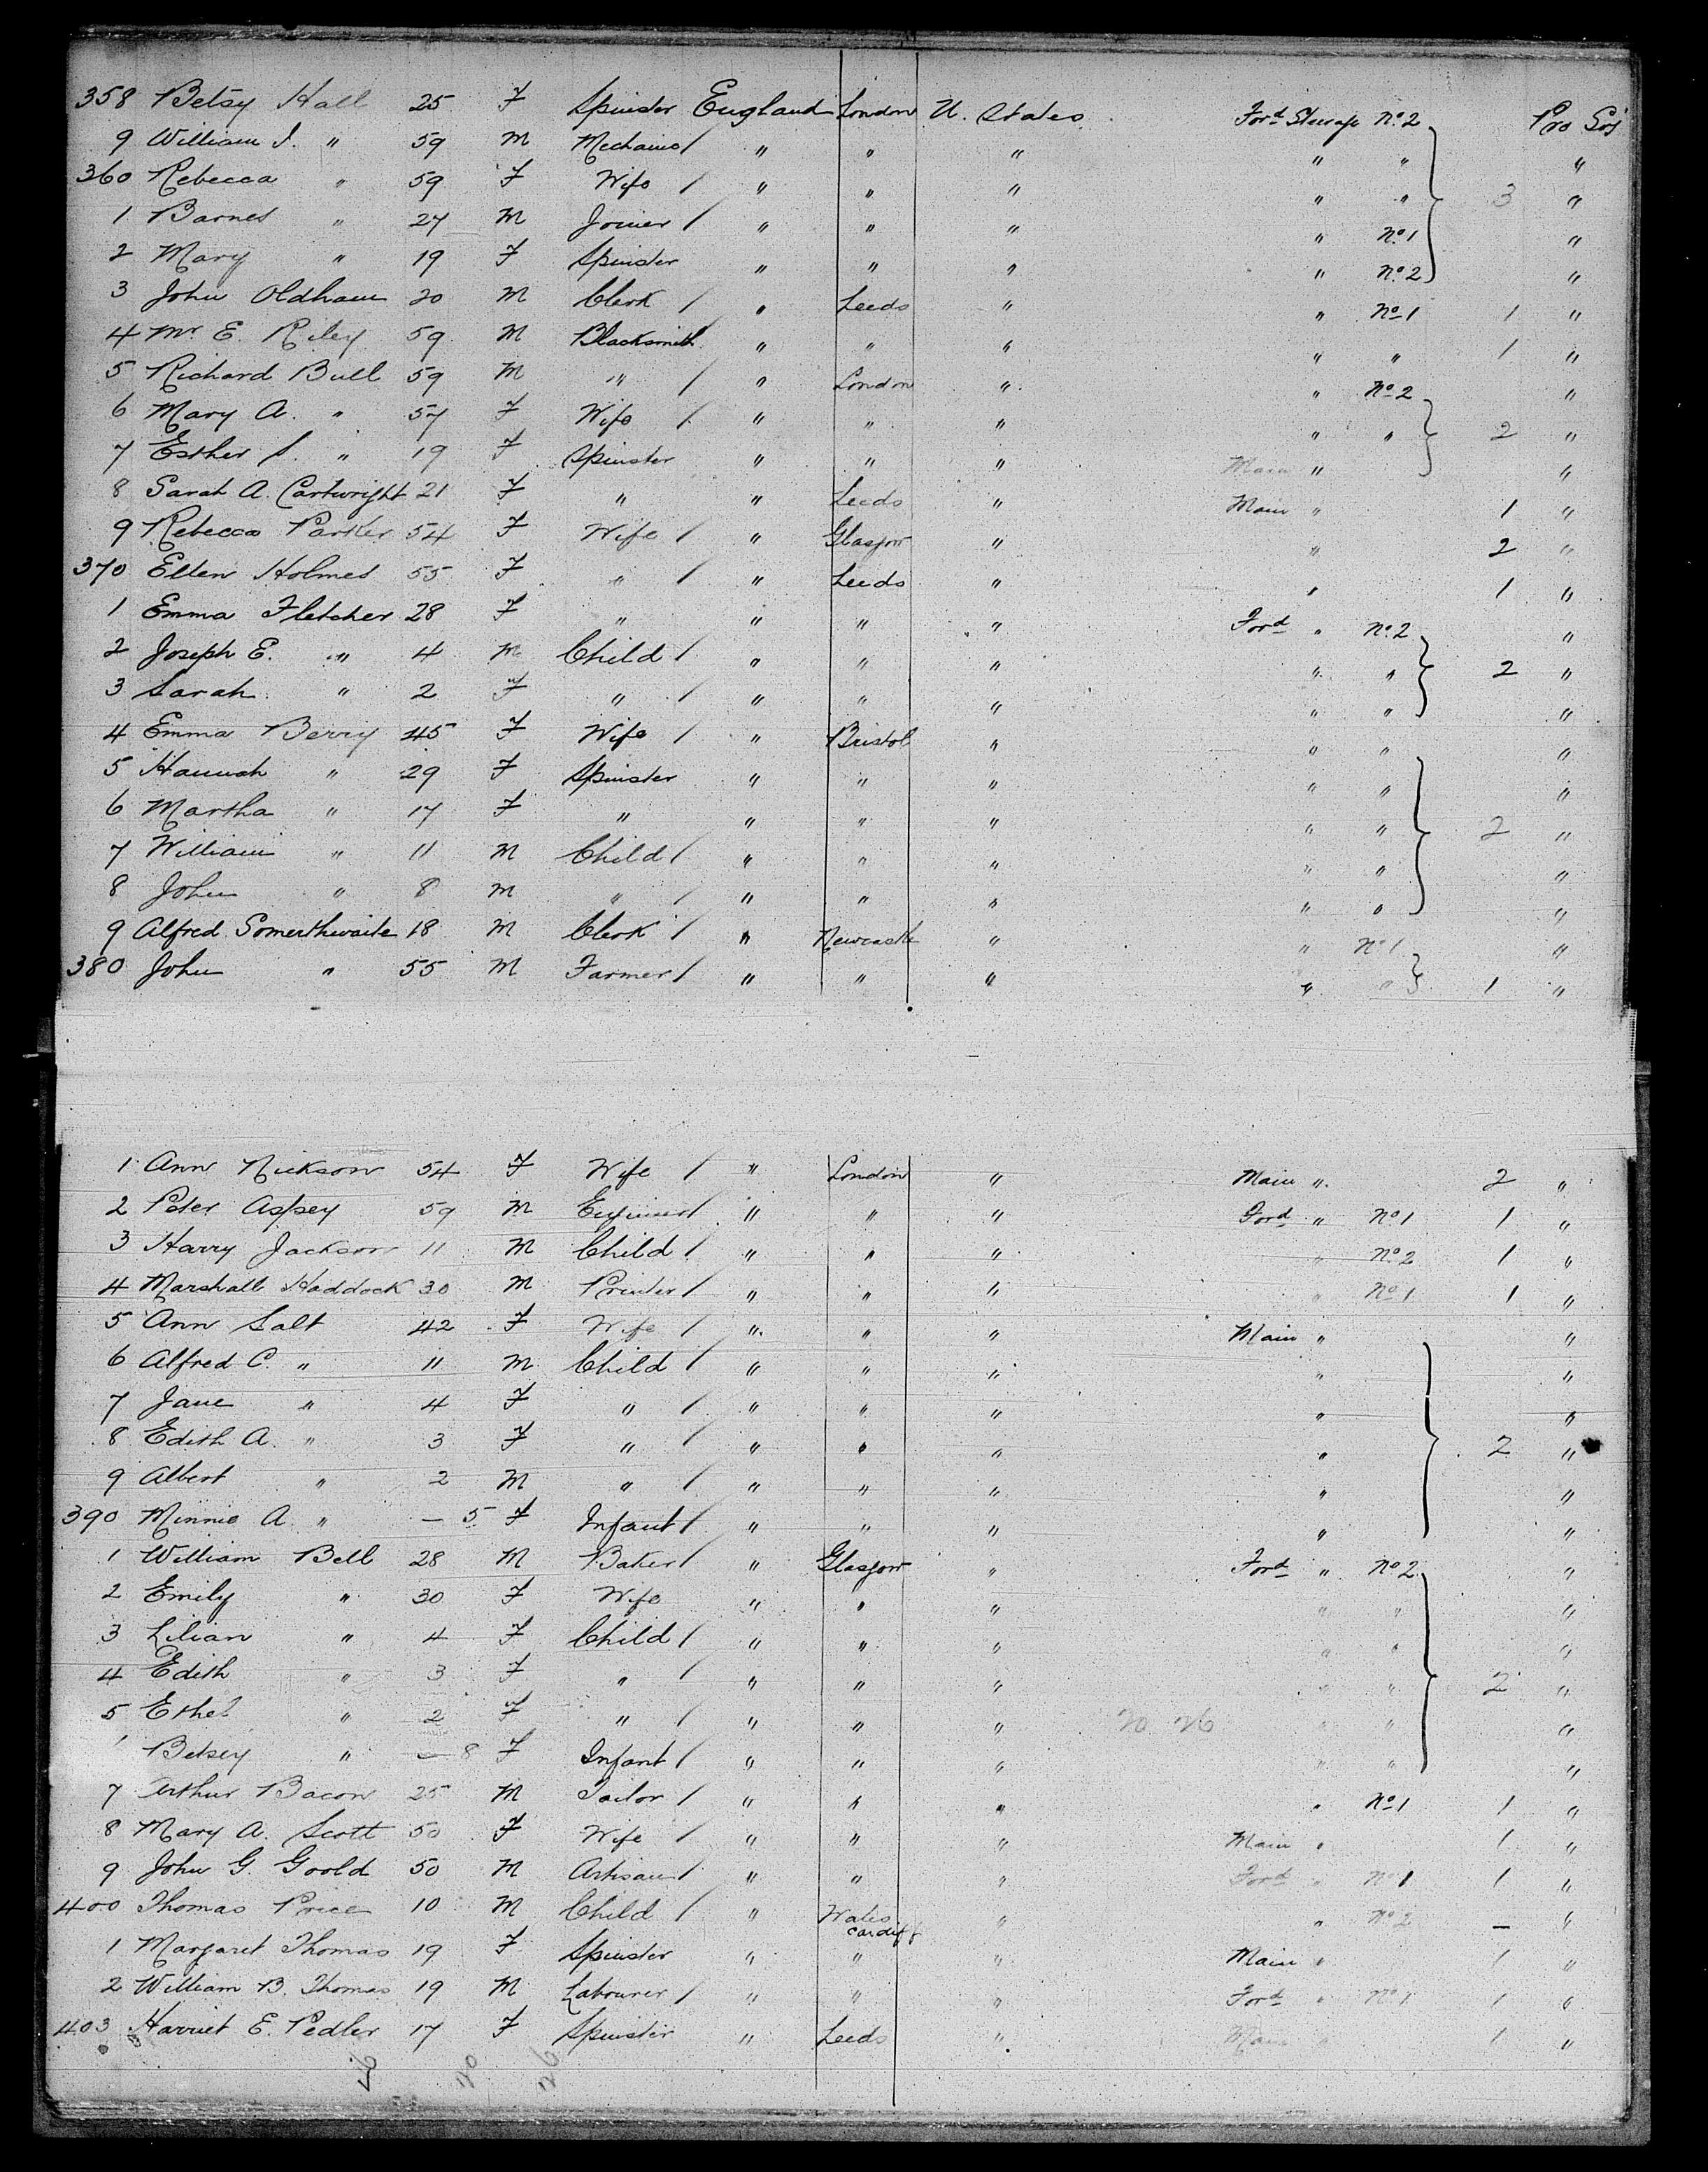 358 Betsy Hall 25 F Spinster England London U. States Ford Steerage No. 2 Pro Soj
9 William J. " 59 M Mechanic / " " " " " "
360 Rebecca " 59 F Wife / " " " " " 3 "
1 Barnes " 27 M Joiner / " " " " No. 1 "
2 Mary " 19 F Spinster " " " " No. 2 "
3 John Oldham 20 M Clerk / " Leeds " " No 1 1 "
4 Mr. E. Riley 59 M Blacksmith " " " " " 1 "
5 Richard Bull 59 M " / " London " " No 2 "
6 Mary A. " 57 F Wife / " " " " " 2 "
7 Esther S. " 19 F Spinster " " " Main " "
8 Sarah A. Cartwright 21 F " " Leeds " Main " 1 "
9 Rebecca Parker 54 F Wife / " Glasgow " " 2 "
370 Ellen Holmes 55 F " / " Leeds " " 1 "
1 Emma Fletcher 28 F " " " " Ford " No. 2 "
2 Joseph E. " 4 M Child / " " " " " 2 "
3 Sarah " 2 F " / " " " " " "
4 Emma Berry 45 F Wife / " Bristol " " " "
5 Hannah " 29 F Spinster " " " " " "
6 Martha " 17 F " " " " " " 2 "
7 William " 11 M Child / " " " " " "
8 John " 8 M " / " " " " " "
9 Alfred Somerthwaite 18 M Clerk / " Newcastle " " No 1 "
380 John " 55 M Farmer / " " " " " 1 "
1 Ann Nickson 54 F Wife / " London " Main " 2 "
2 Peter Aspey 59 M Engineer / " " " Ford " No 1 1 "
3 Harry Jackson 11 M Child / " " " " No 2 1 "
4 Marshall Haddock 30 M Printer / " " " " No 1 1 "
5 Ann Salt 42 F Wife / " " " Main " "
6 Alfred C. " 11 M Child / " " " " "
7 Jane " 4 F " / " " " " "
8 Edith A. " 3 F " / " " " " 2 "
9 Albert " 2 M " / " " " " "
390 Minnie A. " — 5 F Infant / " " " " "
1 William Bell 28 M Baker / " Glasgow " Ford " No 2 "
2 Emily " 30 F Wife " " " " " "
3 Lilian " 4 F Child / " " " " " "
4 Edith " 3 F " / " " " " " 2 "
5 Ethel " 2 F " / " " " " " "
Betsey " — 8 F Infant / " " " " " "
7 Arthur Bacon 25 M Tailor / " " " " No 1 1 "
8 Mary A. Scott 50 F Wife / " " " Main " 1 "
9 John G. Goold 50 M Artisan / " " " Ford " No 1 1 "
400 Thomas Price 10 M Child / " Wales Cardiff " " No 2 — "
1 Margaret Thomas 19 F Spinster " " " Main " 1 "
2 William B. Thomas 19 M Labourer / " " " Ford " No 1 1 "
403 Harriet E. Pedler 17 F Spinster " Leeds " Main " 1 "